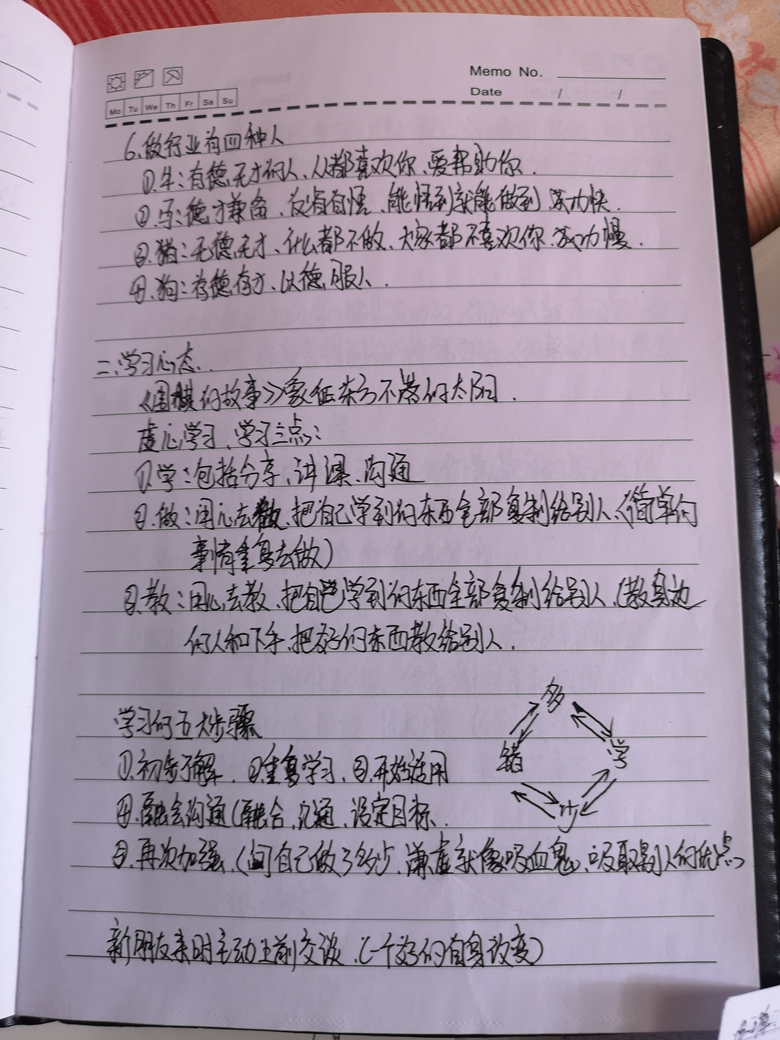 Memo No.
Date / /
Mo Tu We Th Fr Sa Su
6.做行业有四种人
①.牛:有德无才的人、人都喜欢你、要帮助你.
②.马:德才兼备、有肯有悟、能悟到就能做到、成功快.
③.猪:无德无才、什么都不做、大家都不喜欢你、成功慢.
④.狗:有德有才、以德服人.
二.学习心态.
《围棋的故事》象征东方不落的太阳.
虚心学习、学习三点:
①.学:包括分享、讲课、沟通
②.做:用心去做、把自己学到的东西全部复制给别人、(简单的
事情重复去做)
③.教:用心去教、把自己学到的东西全部复制给别人.(教身边
的人和下手、把好的东西教给别人.
学习的五大步骤
①.初步了解、②重复学习、③开始运用
④.融会沟通(融合、沟通、设定目标.
⑤.再次加强、(问自己做了多少、谦虚就像吸血鬼、吸取别人的优点)
多
错 学
少
新朋友来时主动上前交谈.(一个好的自身改变)